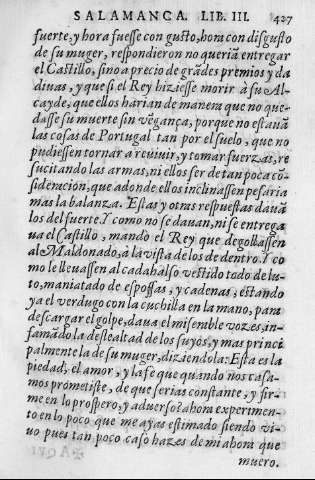 SALAMANCA. LIB. III. 427
fuerte, y hora fuesse con gusto, hora con disgusto
de su muger, respondieron no queriã entregar
el Castillo, sino a precio de grãdes premios y da
diuas, y que si el Rey hiziesse morir à su Al-
cayde, que ellos harian de manera que no que-
dasse su muerte sin vẽgança, porque no estauã
las cosas de Portugal tan por el suelo, que no
pudiessen tornar a reuiuir, y tomar fuerzas, re
sucitando las armas, ni ellos ser de tan poca cõ-
sideracion, que adonde ellos inclinassen pesaria
mas la balanza. Estas y otras respuestas dauã
los del fuerte. Y como no se dauan, ni se entrega
ua el Castillo, mandò el Rey que degollassen
al Maldonado, a la vista de los de dentro. Y co
mo le lleuassen al cadahalso vestido todo de lu-
to, maniatado de esposas, y cadenas, estando
ya el verdugo con la cuchilla en la mano, para
descargar el golpe, daua el miseble vozes, in-
famãdo la deslealtad de los suyos, y mas princi
palmente la de su muger, diziendola: Esta es la
piedad, el amor, y la fe que quando nos casa-
mos prometiste, de que serias constante, y fir-
me en lo prospero, y aduerso? ahora experimen-
to en lo poco que me ayas estimado siendo vi-
uo pues tan poco caso hazes de mi ahora que
muero.